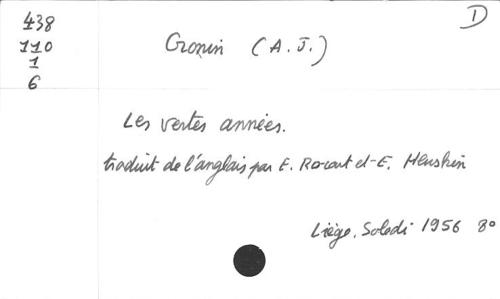 438
110
1
6
D
Cronin (A. J.)
Les vertes années.
traduit de l'anglais par E. Rocart et E.
Liège, Soledi 1956 8°